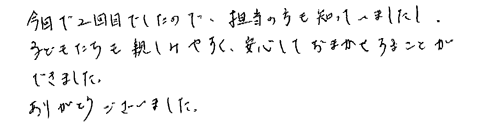 今回で2回目でしたので、担当の方も知っていましたし、
子どもたちも親しみやすく、安心しておまかせすることが
できました。
ありがとうございました。